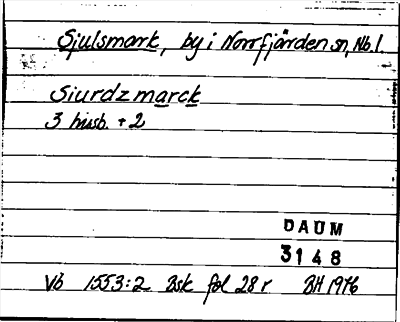 Sjulsmark, by i Norrfjärden sn, Nb.l.
Siurdzmarck
3 hissb. + 2
DAUM
3148
Vb 1553:2 Bsk fol 28 r BH 1976